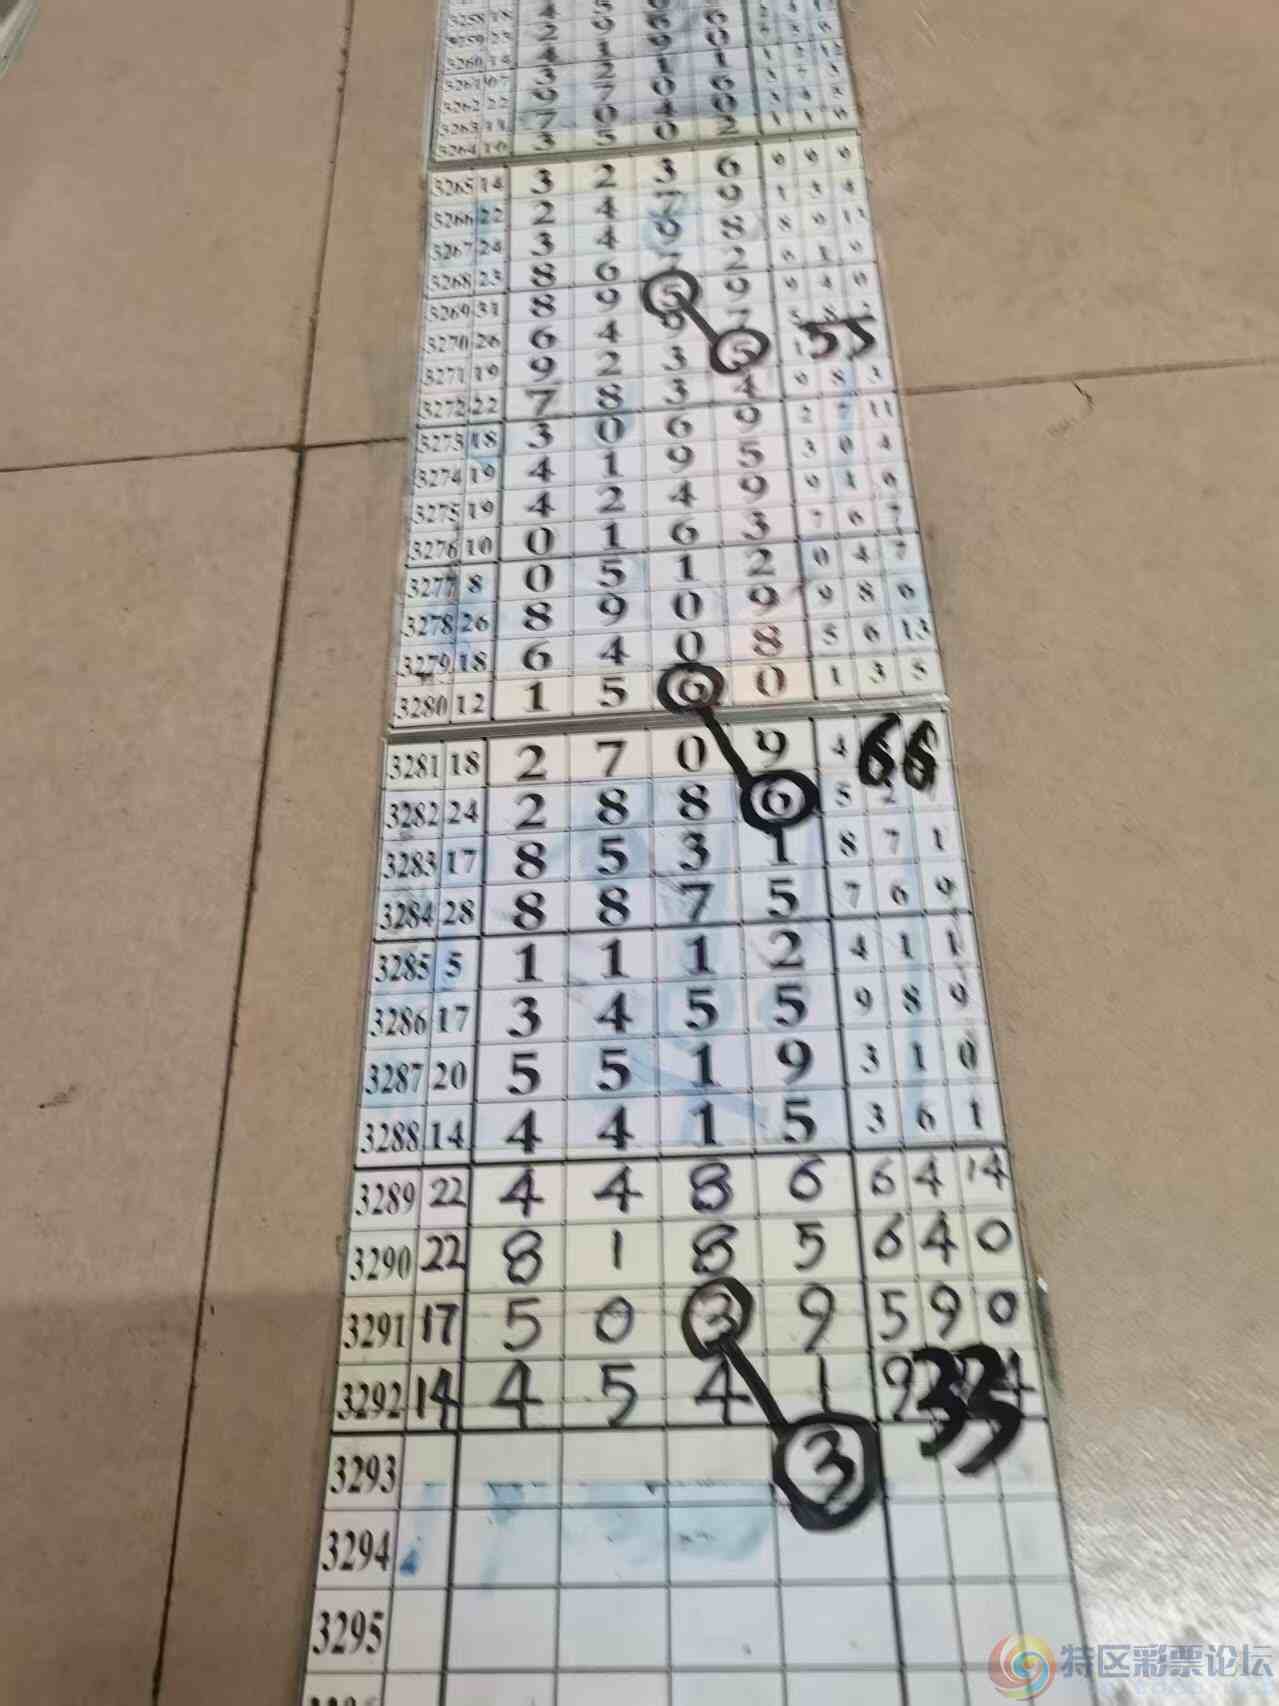 3264 10 3 5 0 2 1 1 0
3265 14 3 2 3 6 9 9 9
3266 22 2 4 7 9 1 3 4
3267 24 3 4 9 8 8 0 13
3268 23 8 6 7 2 6 1 9
3269 31 8 9 5 9 9 4 0
3270 26 6 4 9 7 5 8
3271 19 9 2 3 5 55
3272 22 7 8 3 4 9 8 3
3273 18 3 0 6 9 2 7 11
3274 19 4 1 9 5 3 0 4
3275 19 4 2 4 9 9 1 6
3276 10 0 1 6 3 7 6 7
3277 8 0 5 1 2 0 4 7
3278 26 8 9 0 9 9 8 6
3279 18 6 4 0 8 5 6 13
3280 12 1 5 6 0 1 3 5
3281 18 2 7 0 9 4 66
3282 24 2 8 8 6 5 2
3283 17 8 5 3 1 8 7 1
3284 28 8 8 7 5 7 6 9
3285 5 1 1 1 2 4 1 1
3286 17 3 4 5 5 9 8 9
3287 20 5 5 1 9 3 1 0
3288 14 4 4 1 5 3 6 1
3289 22 4 4 8 6 6 4 14
3290 22 8 1 8 5 6 4 0
3291 17 5 0 3 9 5 9 0
3292 14 4 5 4 1 9 33
3293 3
3294
3295
特区彩票论坛